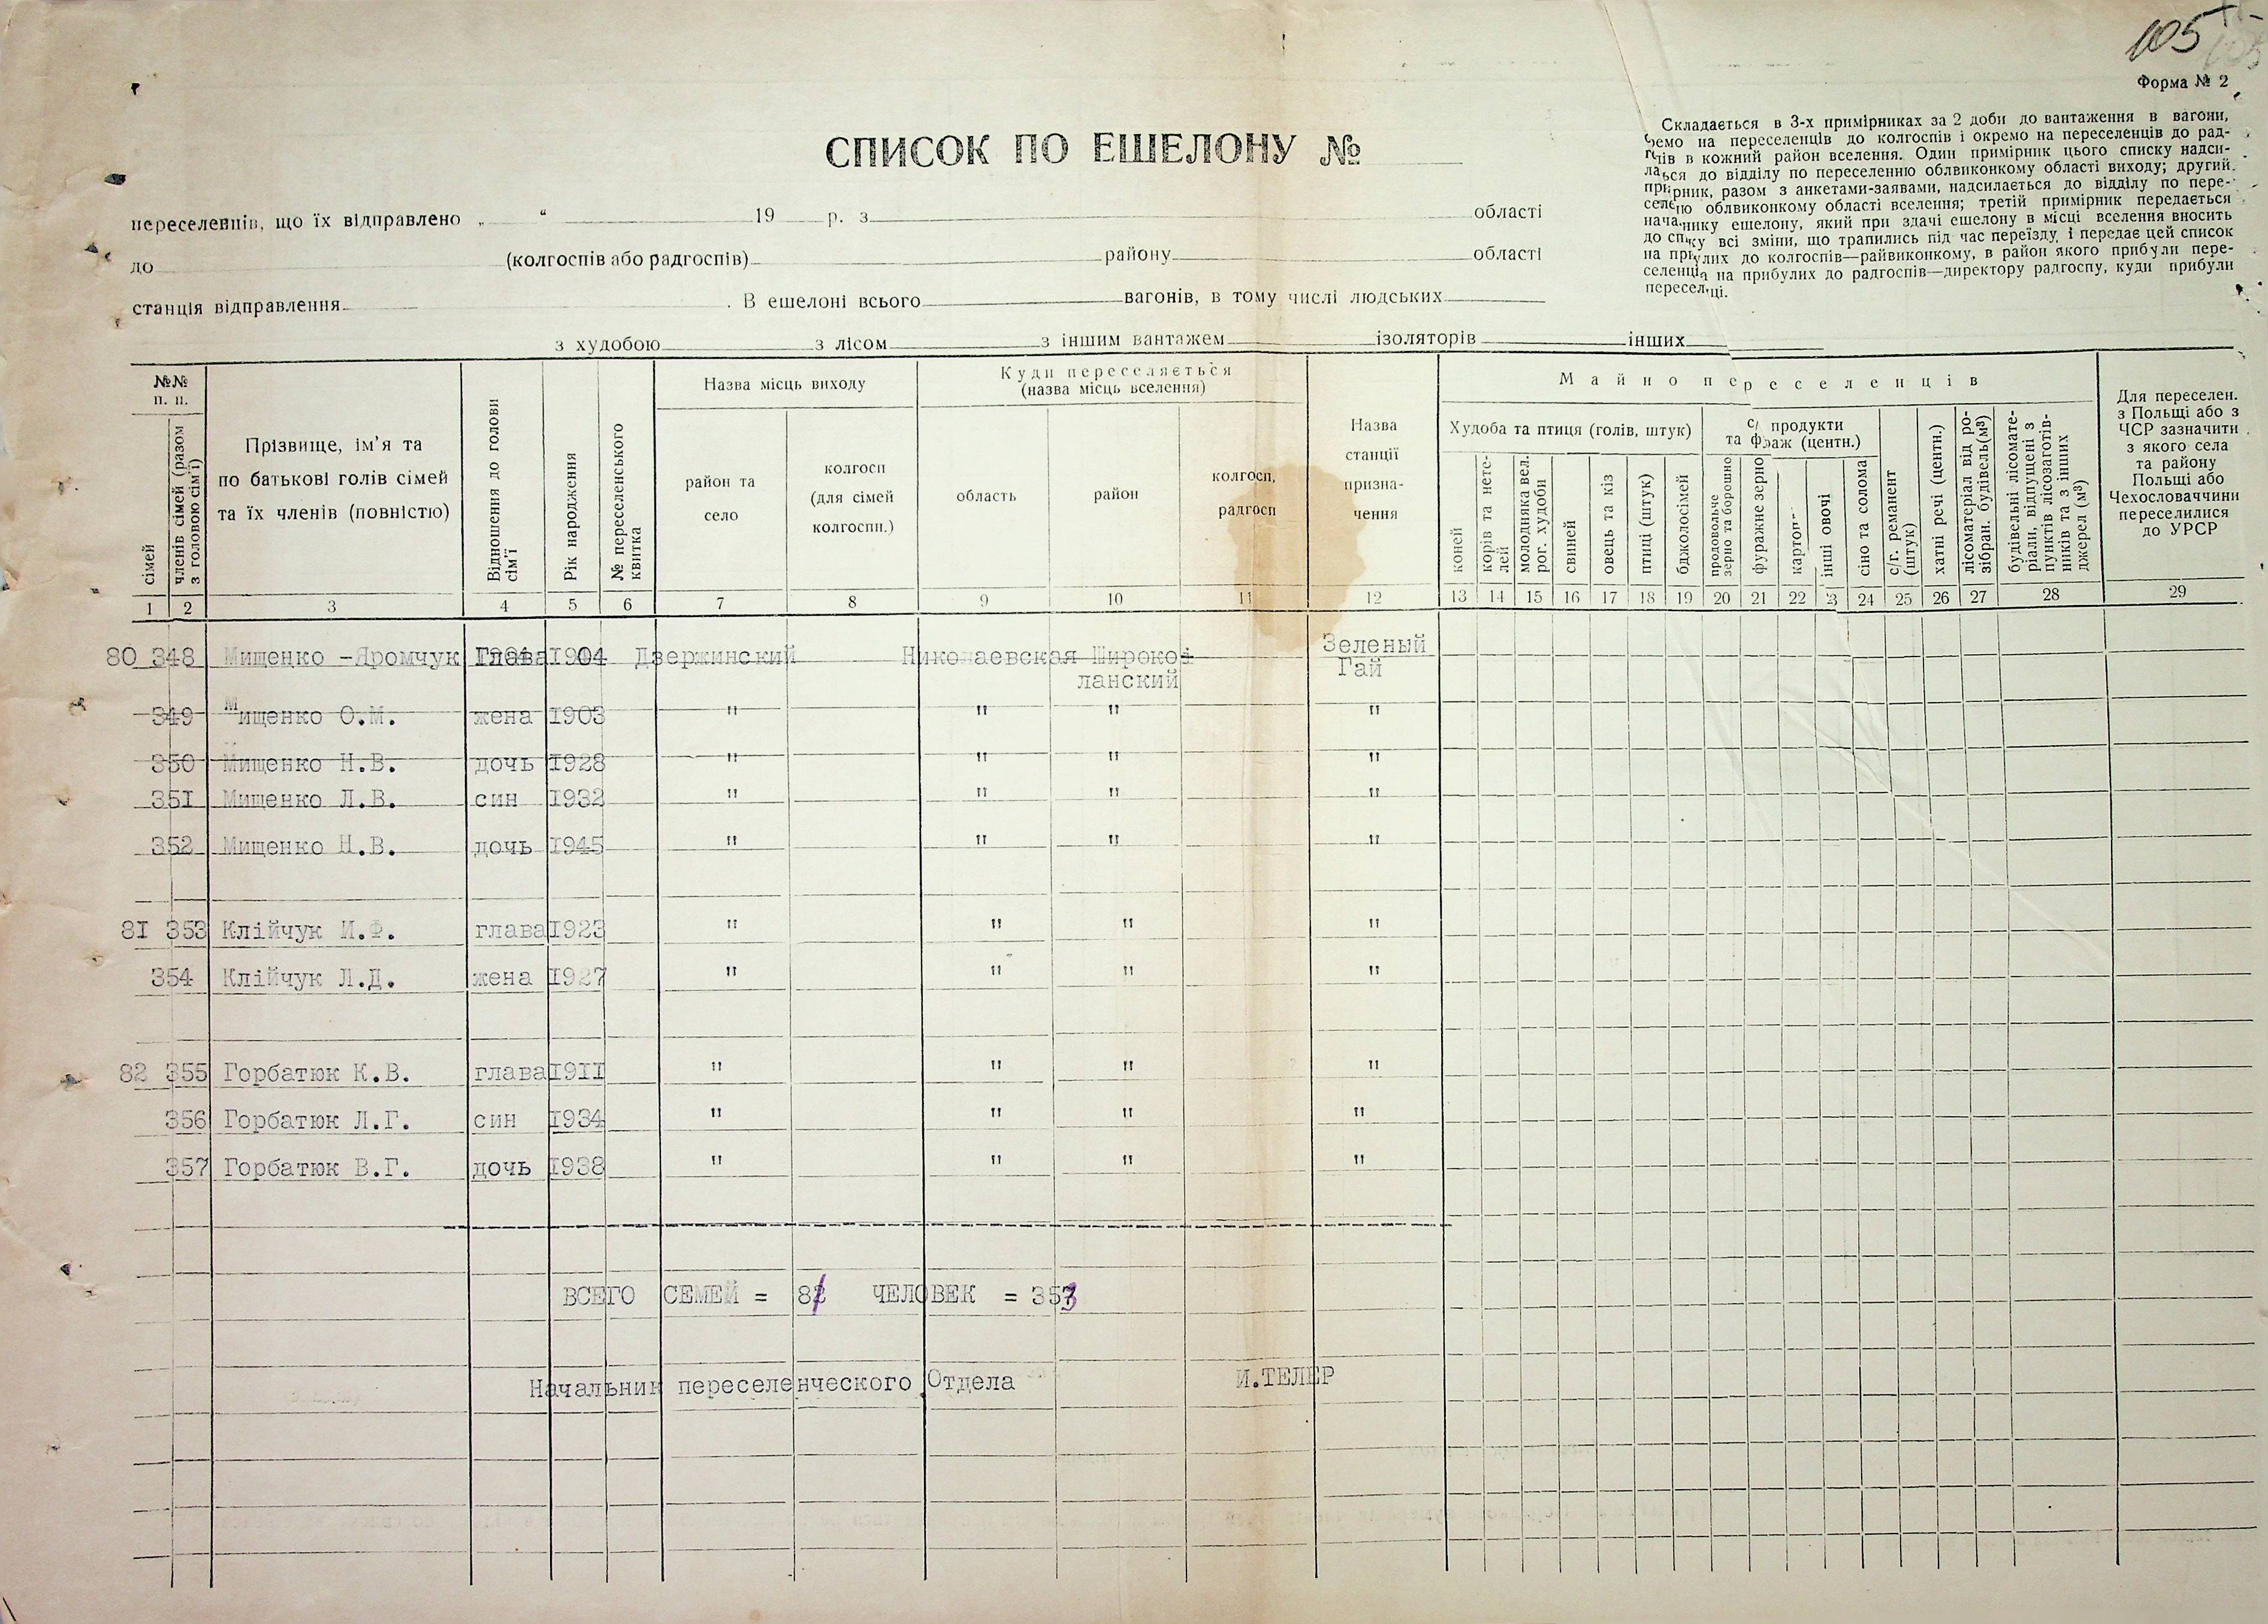 105
Форма № 2
Складається в 3-х примірниках за 2 доби до вантаження в вагони,
ремо на переселенців до колгоспів і окремо на переселенців до рад-
пів в кожний район вселення. Один примірник цього списку надси-
ться до відділу по переселенню облвиконкому області виходу; другий
рник, разом з анкетами-заявами, надсилається до відділу по пере-
ню облвиконкому області вселення; третій примірник передається
нику ешелону, який при здачі ешелону в місці вселення вносить
до списку всі зміни, що трапились під час переїзду, і передає цей список
на прибулих до колгоспів—райвиконкому, в район якого прибули пере-
селенці, на прибулих до радгоспів—директору радгоспу, куди прибули
переселенці.
СПИСОК ПО ЕШЕЛОНУ №
переселенців, що їх відправлено „ “ 19 р. з області
до (колгоспів або радгоспів) району області
станція відправлення . В ешелоні всього вагонів, в тому числі людських
з худобою з лісом з іншим вантажем ізоляторів інших
№№ п. п.
сімей
членів сімей (разом з головою сім'ї)
Прізвище, ім'я та по батькові голів сімей та їх членів (повністю)
Відношення до голови сім'ї
Рік народження
№ переселенського квитка
Назва місць виходу
район та село
колгосп (для сімей колгоспн.)
Куди переселяється (назва місць вселення)
область
район
колгосп, радгосп
Назва станції призна-чення
Майно переселенців
Худоба та птиця (голів, штук)
коней
корів та нете-лей
молодняка вел. рог. худоби
свиней
овець та кіз
птиці (штук)
бджолосімей
с/ продукти та фраж (центн.)
продовольче зерно та борошно
фуражне зерно
картоп
інші овочі
сіно та солома
с/г. реманент (штук)
хатні речі (центн.)
лісоматеріал від ро-зібран. будівель(м³)
будівельні лісомате-ріали, відпущені з пунктів лісозаготів-ників та з інших джерел (м³)
Для переселен. з Польщі або з ЧСР зазначити з якого села та району Польщі або Чехословаччини переселилися до УРСР
1 2 3 4 5 6 7 8 9 10 11 12 13 14 15 16 17 18 19 20 21 22 23 24 25 26 27 28 29
80 348 Мищенко -Яромчук Глава 1904 Дзержинский Николаевская Широко- Зеленый
ланский Гай
349 Мищенко О.М. жена 1903 " " " "
350 Мищенко Н.В. дочь 1928 " " " "
351 Мищенко Л.В. син 1932 " " " "
352 Мищенко Н.В. дочь 1945 " " " "
81 353 Клійчук И.Ф. глава 1923 " " " "
354 Клійчук Л.Д. жена 1927 " " " "
82 355 Горбатюк К.В. глава 1911 " " " "
356 Горбатюк Л.Г. син 1934 " " " "
357 Горбатюк В.Г. дочь 1938 " " " "
ВСЕГО СЕМЕЙ = 81 ЧЕЛОВЕК = 353
Начальник переселенческого Отдела И.ТЕЛЕР